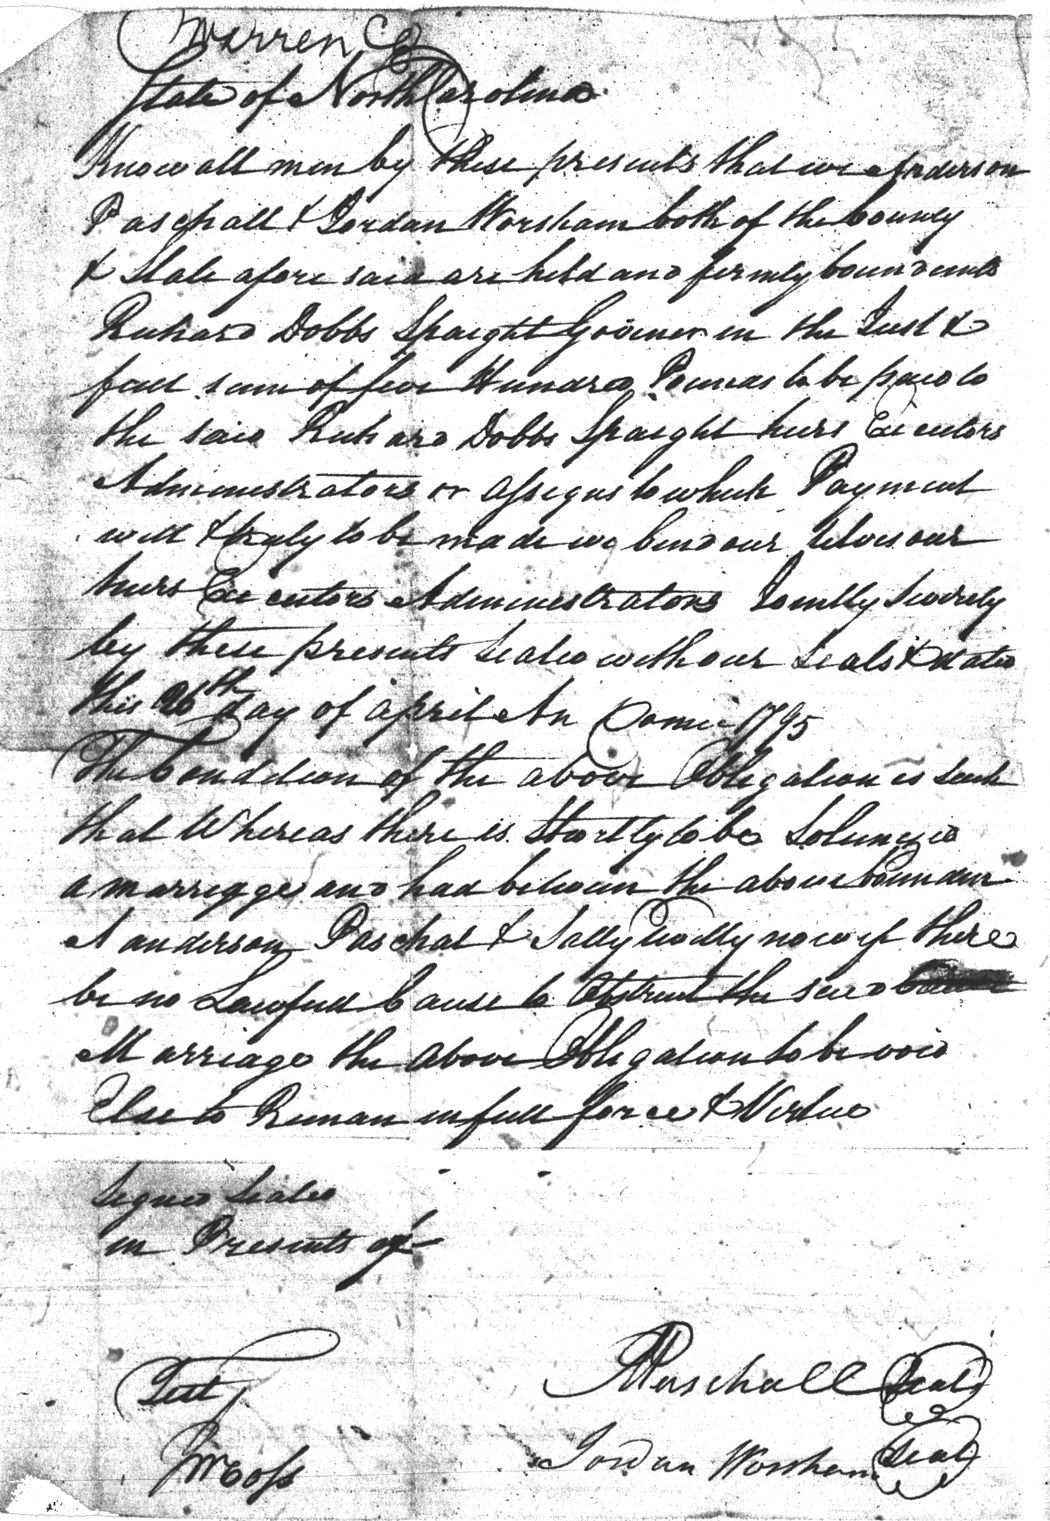 Warren Co
State of North Carolina
Know all men by these presents that we Anderson
Paschall & Jordan Worsham both of the County
& State afore said are held and firmly bound unto
Richard Dobbs Spaight Govener in the Just &
full sum of five Hundred Pounds to be paid to
the said Richard Dobbs Spaight heirs Executors
Administrators or assigns to which Payment
well & truly to be made we bind our selves our
heirs Executors Administrators Jointly Severely
by these presents Sealed with our Seals & dated
this 26th day of april An Domi 1795
The Condition of the above Obligation is such
that Whereas there is Shortly to be Solemnized
a marriage and had between the above bounden
Anderson Paschal & Sally now if there
be no Lawfull Cause to Obstruct the said
Marriage the above Obligation to be void
Else to Remain in full force & Virtue
Signed Sealed
in Presents of
Test
APaschall Seal
Jordan Worsham Seal